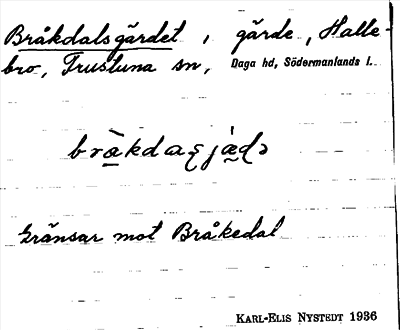 Bråkdalsgärdet, gärde, Halle-
bro, Frustuna sn, Daga hd, Södermanlands l.
Gränsar mot Bråkedal
KARL-ELIS NYSTEDT 1936